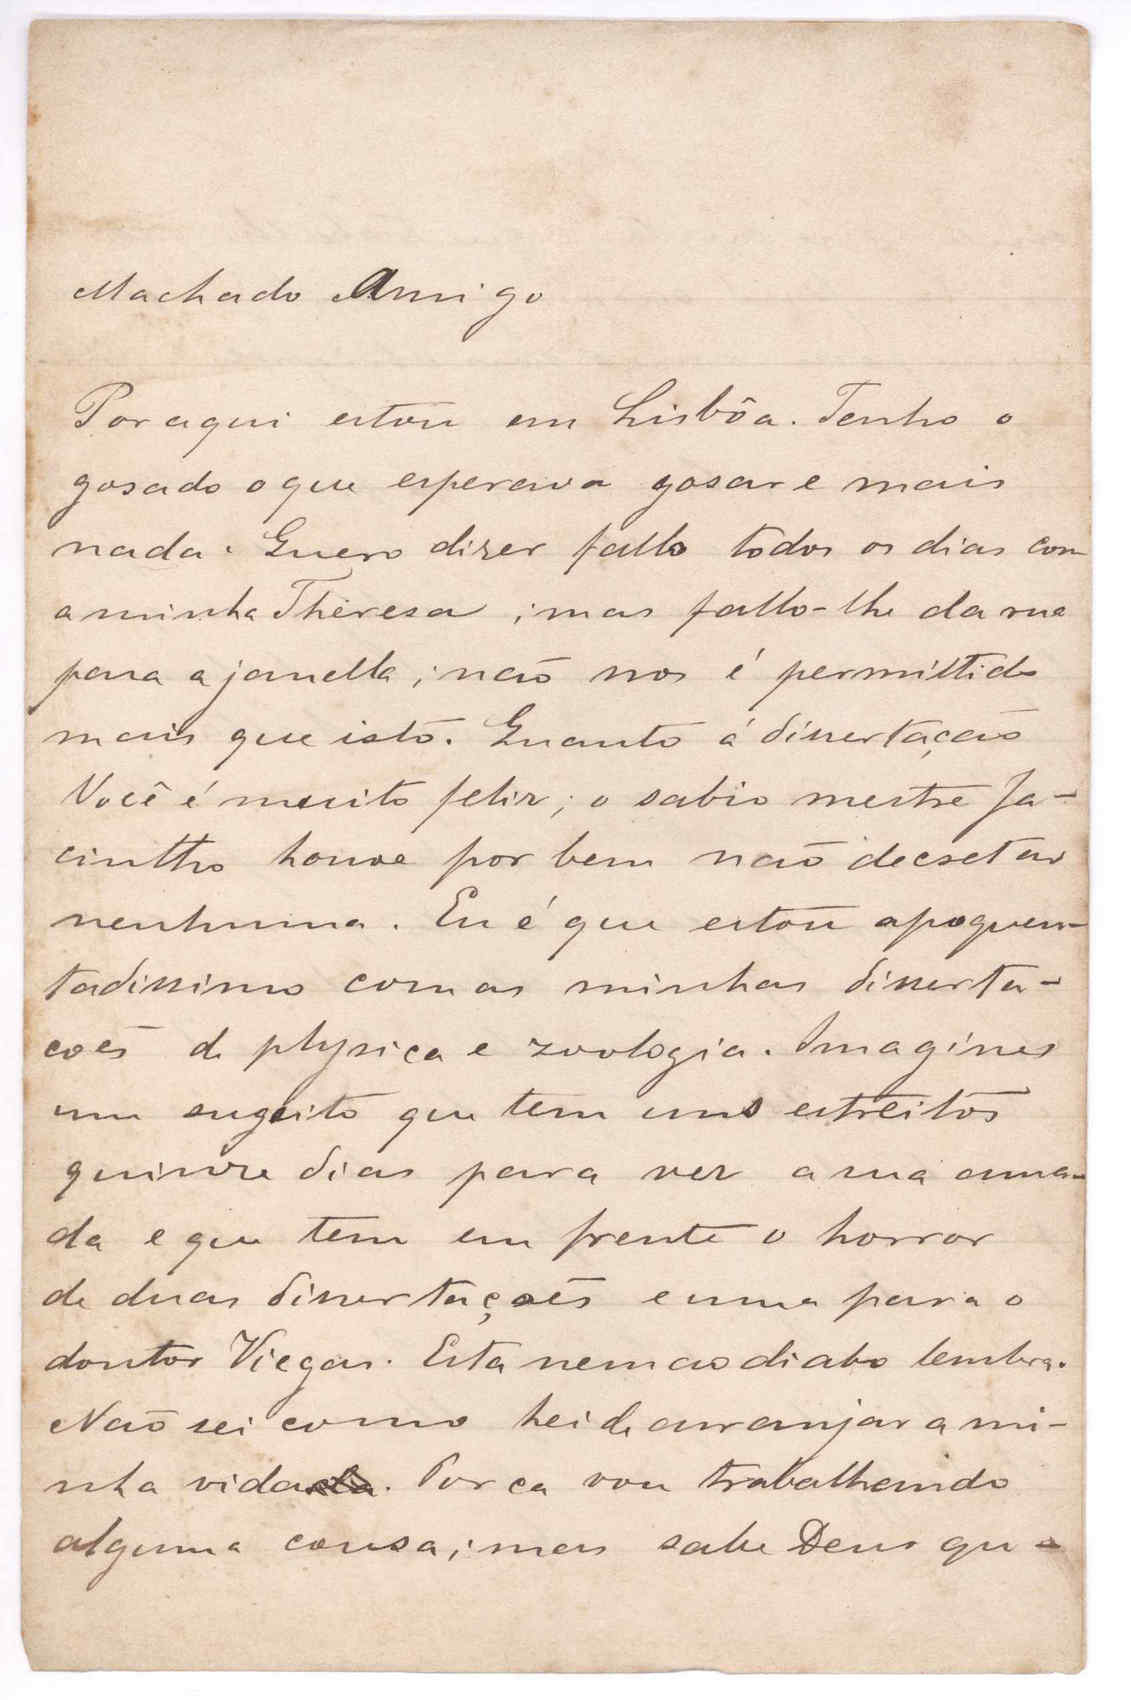 Machado Amigo
Por aqui estou em Lisbôa. Tenho o
gosado o que esperava gosar e mais
nada. Quero dizer fallo todos os dias com
a minha Thèresa; mas fallo-lhe da rua
para a janella; não nos é permittido
mais que isto. Quanto á dissertação
Você é muito feliz; o sabio mestre Ja-
cintho houve por bem não decretar
nenhuma. Eu é que estou apoquen-
tadissimo com as minhas disserta-
coẽs de physica e zoologia. Imagines
um sugeito que tem uns estreitos
quinze dias para ver a sua ama-
da e que tem em frente o horror
de duas dissertações e uma para o
doutor Viegas. Esta nem ao diabo lembra.
Não sei como hei de arranjar a mi-
nha vida. Por ca vou trabalhando
alguma cousa; mas sabe Deus qu-